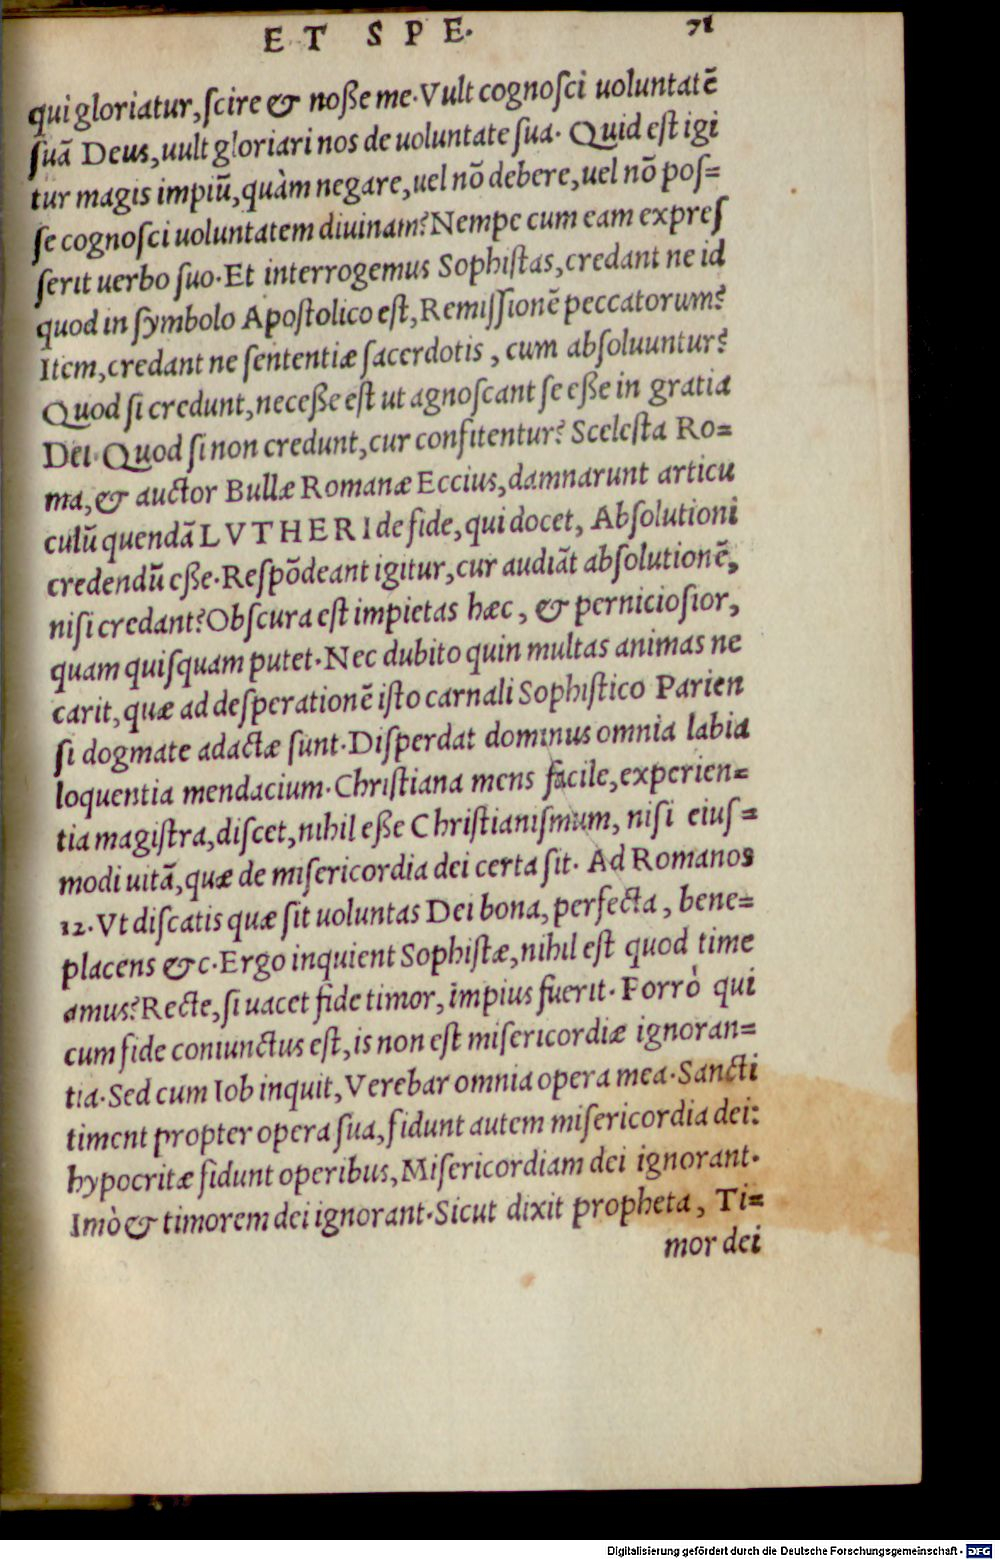 ET SPE. 71
qui gloriatur, ſcire & noße me. Vult cognoſci uoluntatẽ
ſuã Deus, uult gloriari nos de uoluntate ſua. Quid eſt igi
tur magis impiũ, quàm negare, uel nõ debere, uel nõ poſ=
ſe cognoſci uoluntatem diuinam? Nempe cum eam expreſ
ſerit uerbo ſuo. Et interrogemus Sophiſtas, credant ne id
quod in ſymbolo Apoſtolico eſt, Remiſſionẽ peccatorum?
Item, credant ne ſententiæ ſacerdotis, cum abſoluuntur?
Quod ſi credunt, neceße eſt ut agnoſcant ſe eße in gratia
Dei. Quod ſi non credunt, cur confitentur? Sceleſta Ro=
ma, & auctor Bullæ Romanæ Eccius, damnarunt articu
culũ quendã LVTHERI de fide, qui docet, Abſolutioni
credendũ eße. Reſpõdeant igitur, cur audiãt abſolutionẽ,
niſi credant? Obſcura eſt impietas hæc, & pernicioſior,
quam quiſquam putet. Nec dubito quin multas animas ne
carit, quæ ad deſperationẽ iſto carnali Sophiſtico Parien
ſi dogmate adactæ ſunt. Diſperdat dominus omnia labia
loquentia mendacium. Chriſtiana mens facile, experien=
tia magiſtra, diſcet, nihil eße Chriſtianiſmum, niſi eiuſ=
modi uitã, quæ de miſericordia dei certa ſit. Ad Romanos
12. Vt diſcatis quæ ſit uoluntas Dei bona, perfecta, bene=
placens &c. Ergo inquient Sophiſtæ, nihil eſt quod time
amus? Recte, ſi uacet fide timor, impius fuerit. Porrò qui
cum fide coniunctus eſt, is non eſt miſericordiæ ignoran=
tia. Sed cum Iob inquit, Verebar omnia opera mea. Sancti
timent propter opera ſua, fidunt autem miſericordia dei:
hypocritæ fidunt operibus, Miſericordiam dei ignorant.
Imò & timorem dei ignorant. Sicut dixit propheta, Ti=
mor dei
Digitalisierung gefördert durch die Deutsche Forschungsgemeinschaft - DFG